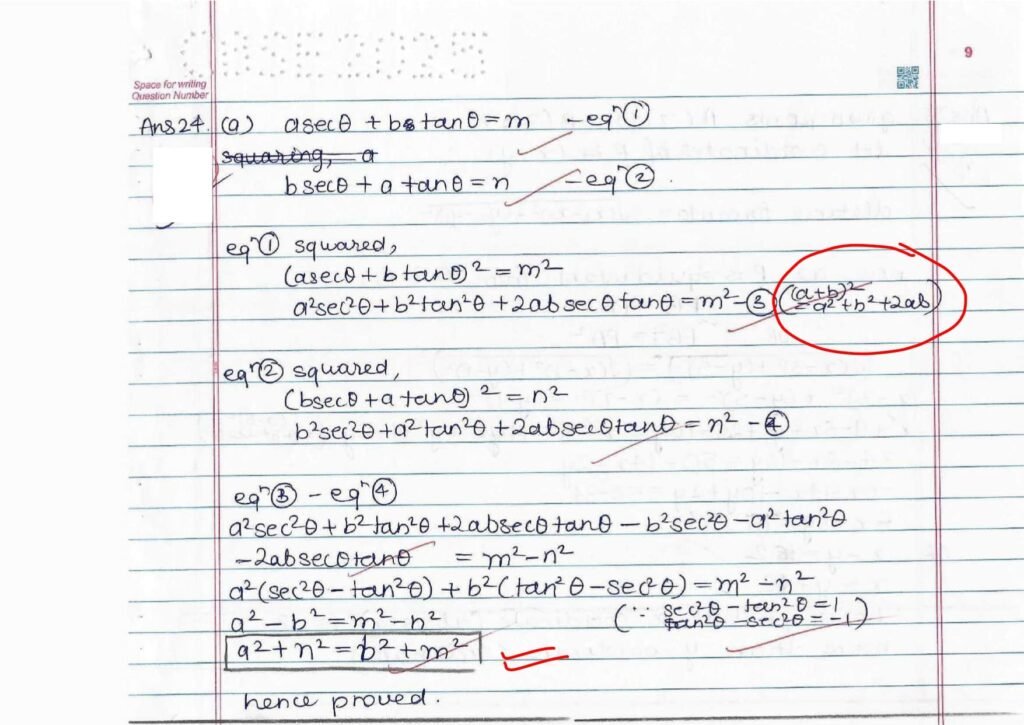 CBSE 2025
9
Space for writing
Question Number
Ans 24. (a) a secθ + b tanθ = m - eqⁿ ①
squaring, a
b secθ + a tanθ = n - eqⁿ ②.
eqⁿ ① squared,
(a secθ + b tanθ)² = m²
a²sec²θ + b²tan²θ + 2ab secθ tanθ = m² - ③ ((a+b)²
= a² + b² + 2ab)
eqⁿ ② squared,
(b secθ + a tanθ)² = n²
b²sec²θ + a²tan²θ + 2ab secθ tanθ = n² - ④
eqⁿ ③ - eqⁿ ④
a²sec²θ + b²tan²θ + 2ab secθ tanθ - b²sec²θ - a²tan²θ
- 2ab secθ tanθ = m² - n²
a²(sec²θ - tan²θ) + b²(tan²θ - sec²θ) = m² - n²
a² - b² = m² - n² (∵ sec²θ - tan²θ = 1
tan²θ - sec²θ = -1)
a² + n² = b² + m²
hence proved.